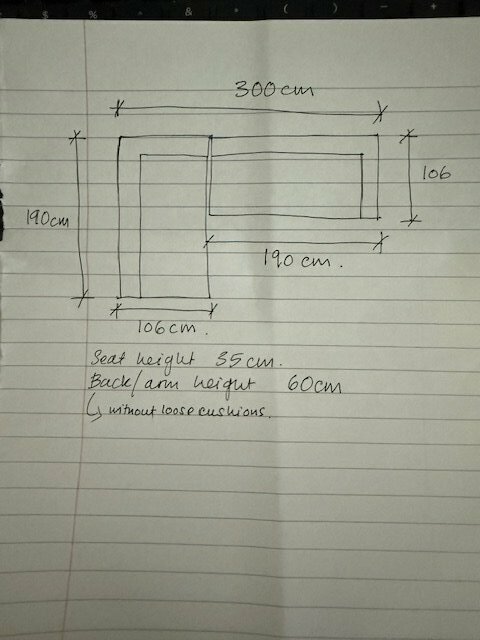 300cm
106
190cm
190 cm.
106cm.
Seat height 35cm.
Back/arm height 60cm
↳ without loose cushions.